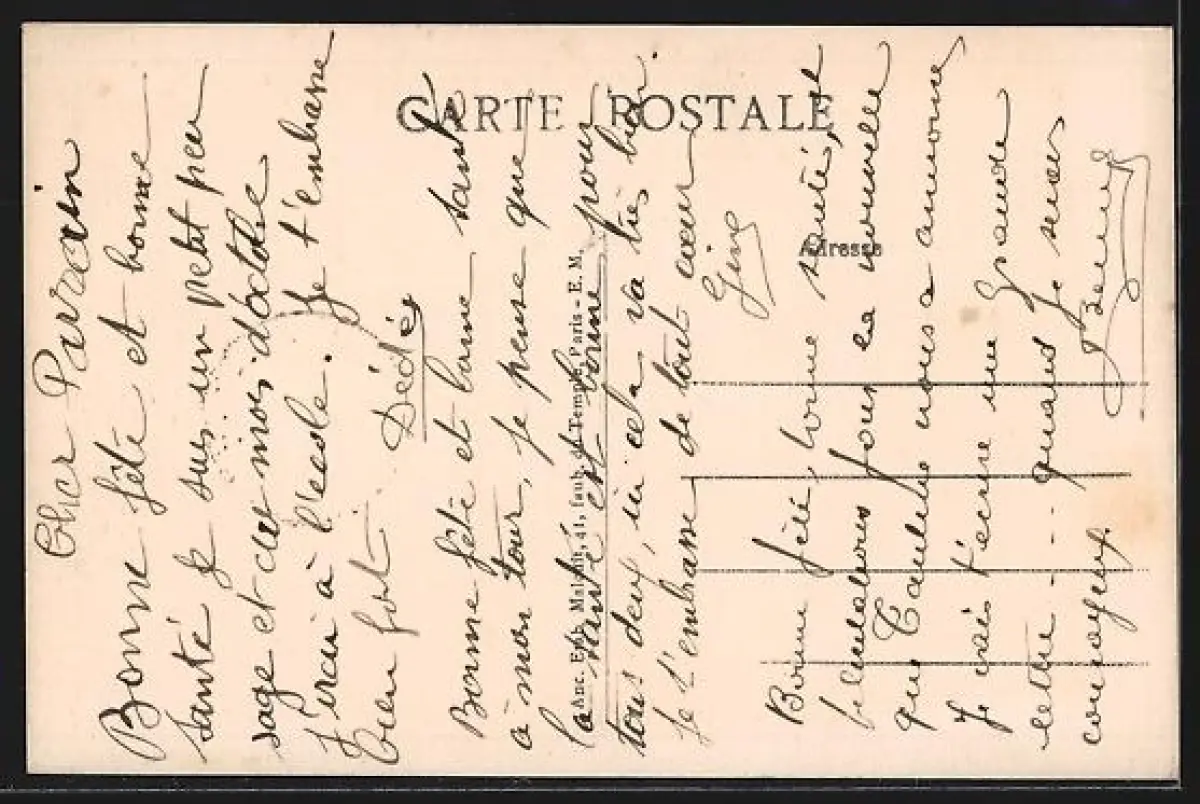 CARTE POSTALE
Adresse
Anc. Etab. Malcuit, 41, faub. du Temple, Paris - E. M.
Cher Parrain
Bonne fête et bonne
santé je suis un petit peu
sage et au mois d'octobre
J'irai à l'école. Je t'embrasse
bien fort. Dédé
Bonne fête et bonne santé
à mon tour, je pense que
la santé est bonne pour
tous deux, ici cela va très bien.
Je t'embrasse de tout cœur
Gine
Bonne fête bonne santé, et
félicitations pour la nouvelle
que nous a annoncé
Je vais t'écrire une Grande
lettre - - - quand je serai
courageux.